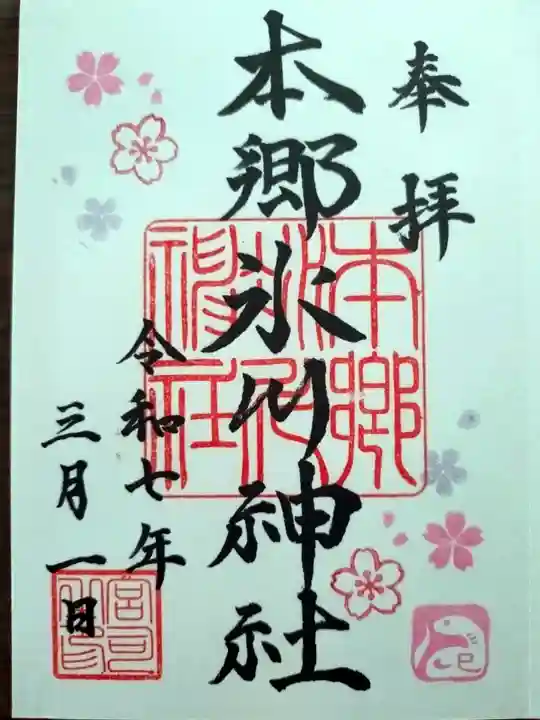 奉拝
本郷氷川神社
令和七年
三月一日
本郷
氷川
神社
宮司
之印
巳